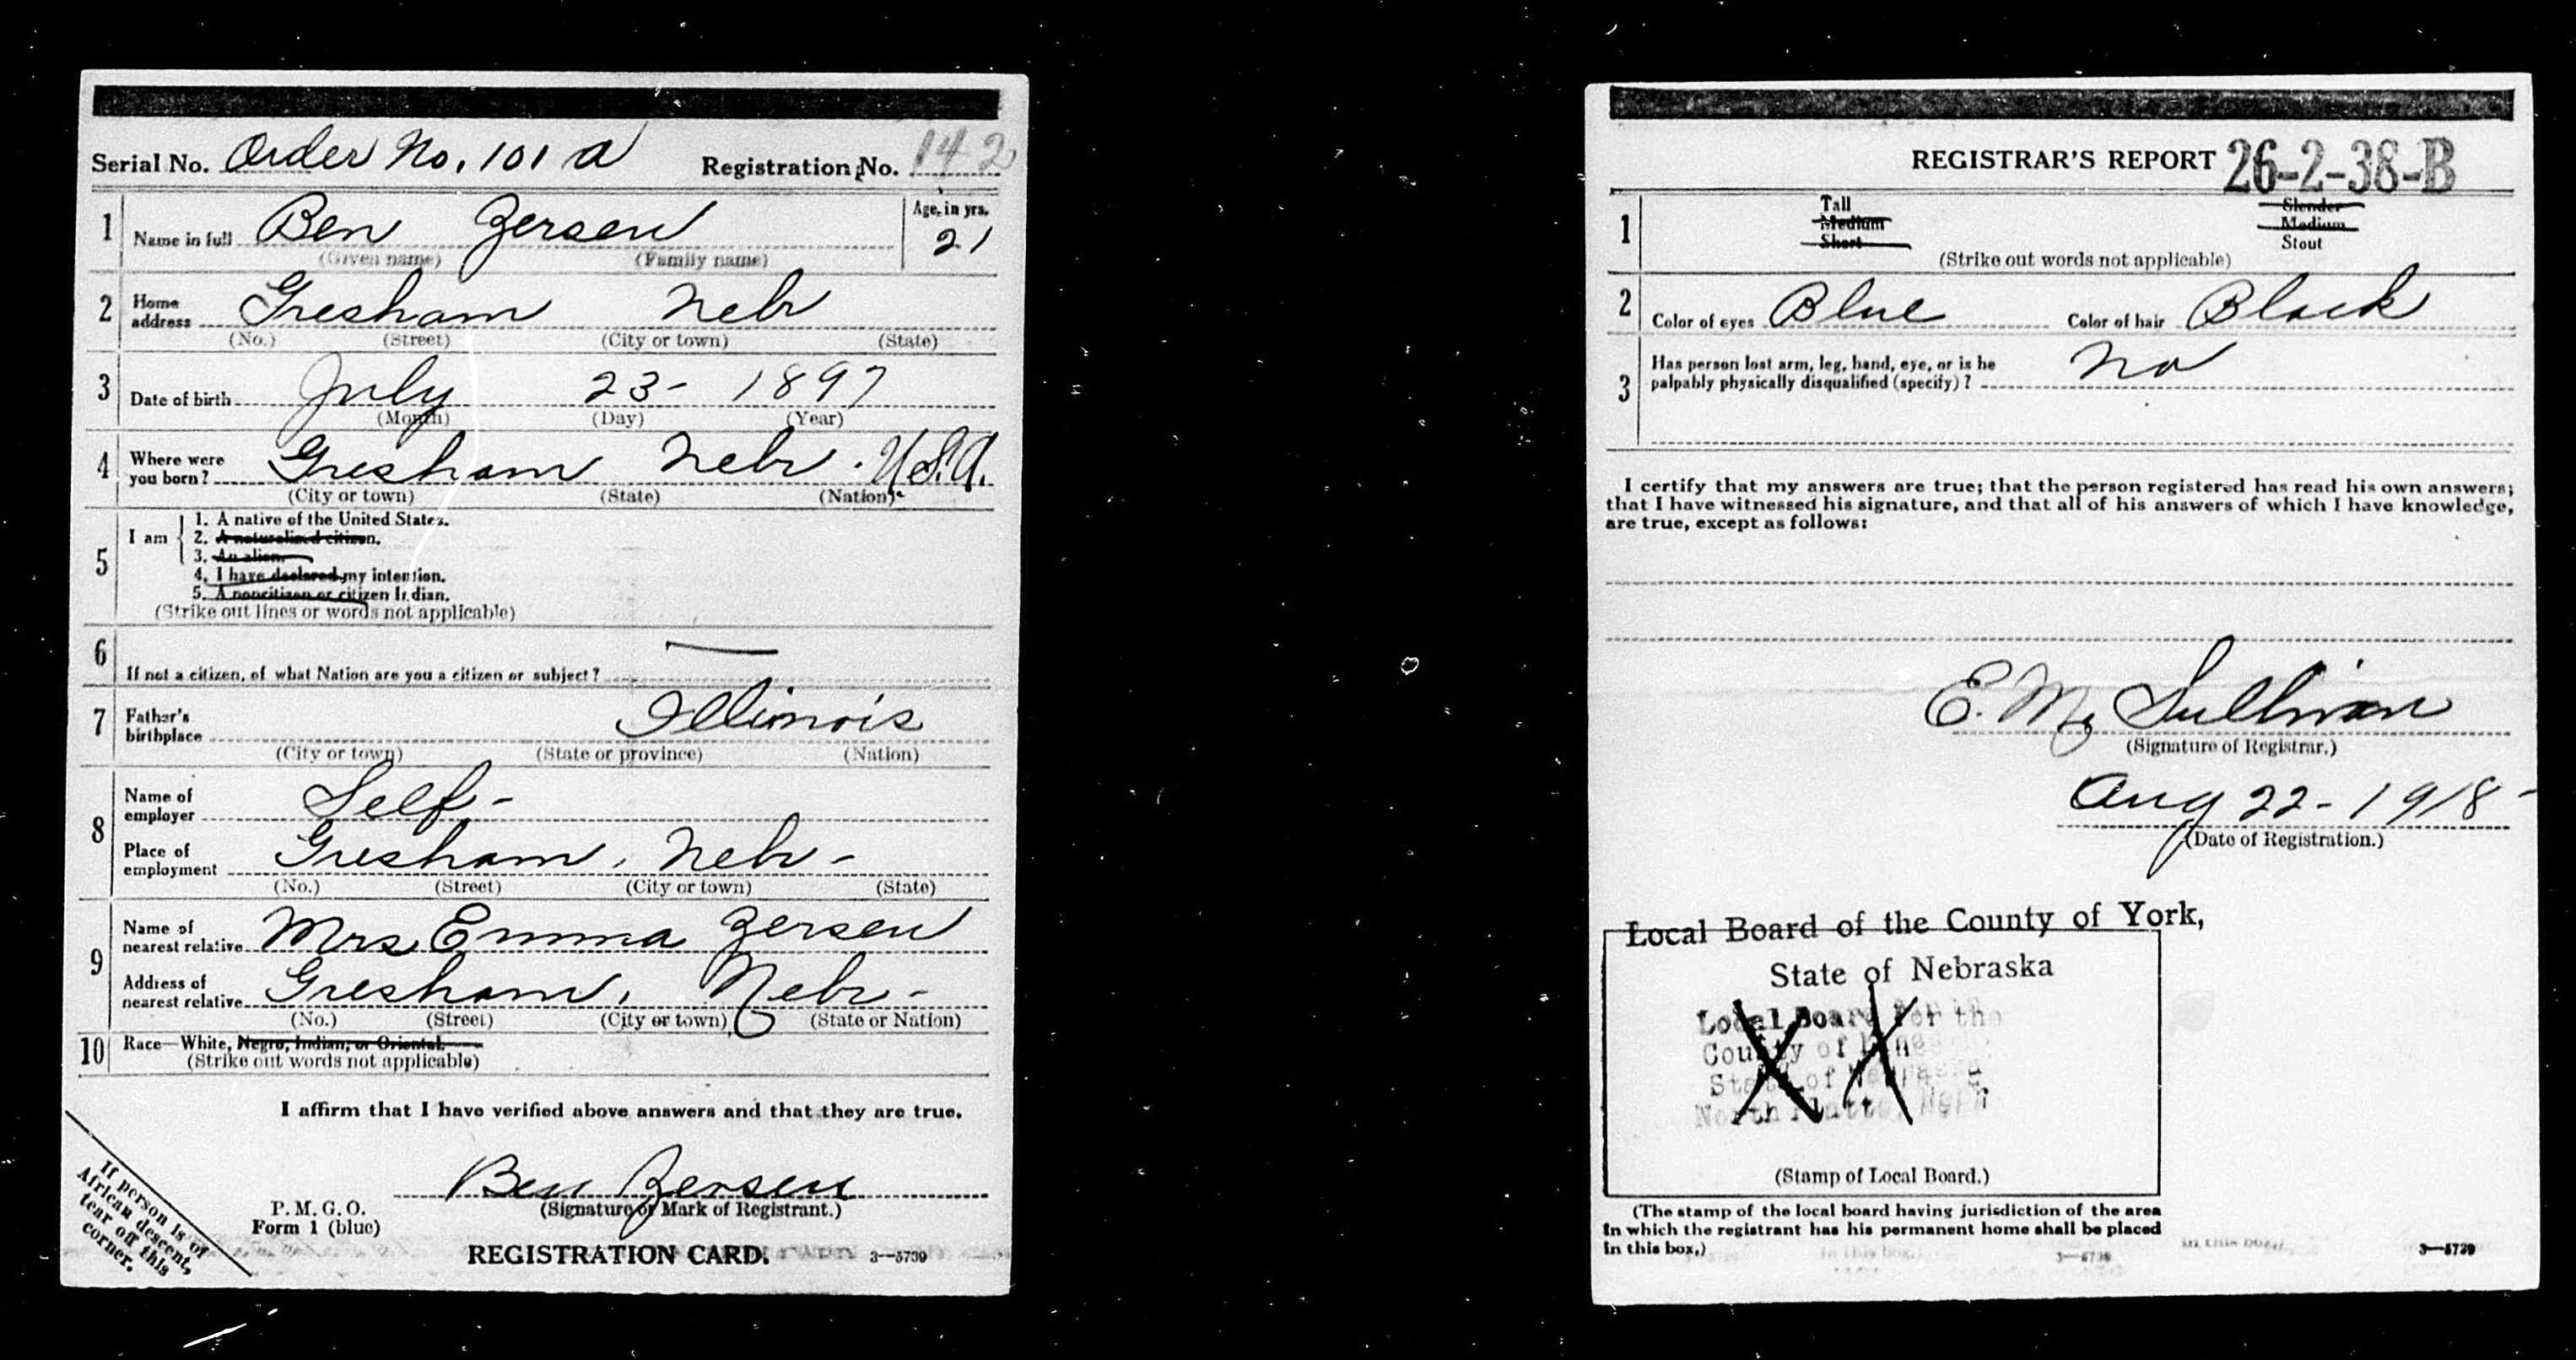 Serial No. Order No. 101 A Registration No. 142
1 Name in full Ben Zersen Age, in yrs. 21
(Given name) (Family name)
2 Home address Gresham Nebr
(No.) (Street) (City or town) (State)
3 Date of birth July 23- 1897
(Month) (Day) (Year)
4 Where were you born? Gresham Nebr. U.S.A.
(City or town) (State) (Nation)
5 I am
1. A native of the United States.
2. A naturalized citizen.
3. An alien.
4. I have declared my intention.
5. A noncitizen or citizen Indian.
(Strike out lines or words not applicable)
6 If not a citizen, of what Nation are you a citizen or subject? —
7 Father's birthplace Illinois
(City or town) (State or province) (Nation)
8 Name of employer Self-
Place of employment Gresham, Nebr-
(No.) (Street) (City or town) (State)
9 Name of nearest relative Mrs Emma Zersen
Address of nearest relative Gresham, Nebr-
(No.) (Street) (City or town) (State or Nation)
10 Race—White, Negro, Indian, or Oriental.
(Strike out words not applicable)
I affirm that I have verified above answers and that they are true.
Ben Zersen
(Signature or Mark of Registrant.)
P. M. G. O.
Form 1 (blue)
REGISTRATION CARD. 3—5739
If person is of
African descent,
tear off this
corner.
REGISTRAR'S REPORT 26-2-38-B
1 Tall Slender
Medium Medium
Short Stout
(Strike out words not applicable)
2 Color of eyes Blue Color of hair Black
3 Has person lost arm, leg, hand, eye, or is he No
palpably physically disqualified (specify)?
I certify that my answers are true; that the person registered has read his own answers;
that I have witnessed his signature, and that all of his answers of which I have knowledge,
are true, except as follows:
E. M. Sullivan
(Signature of Registrar.)
Aug 22-1918-
(Date of Registration.)
Local Board of the County of York,
State of Nebraska
Local Board for the
County of
State of Nebraska
North Platte, Nebr
(Stamp of Local Board.)
(The stamp of the local board having jurisdiction of the area
in which the registrant has his permanent home shall be placed
in this box.)
3—5739